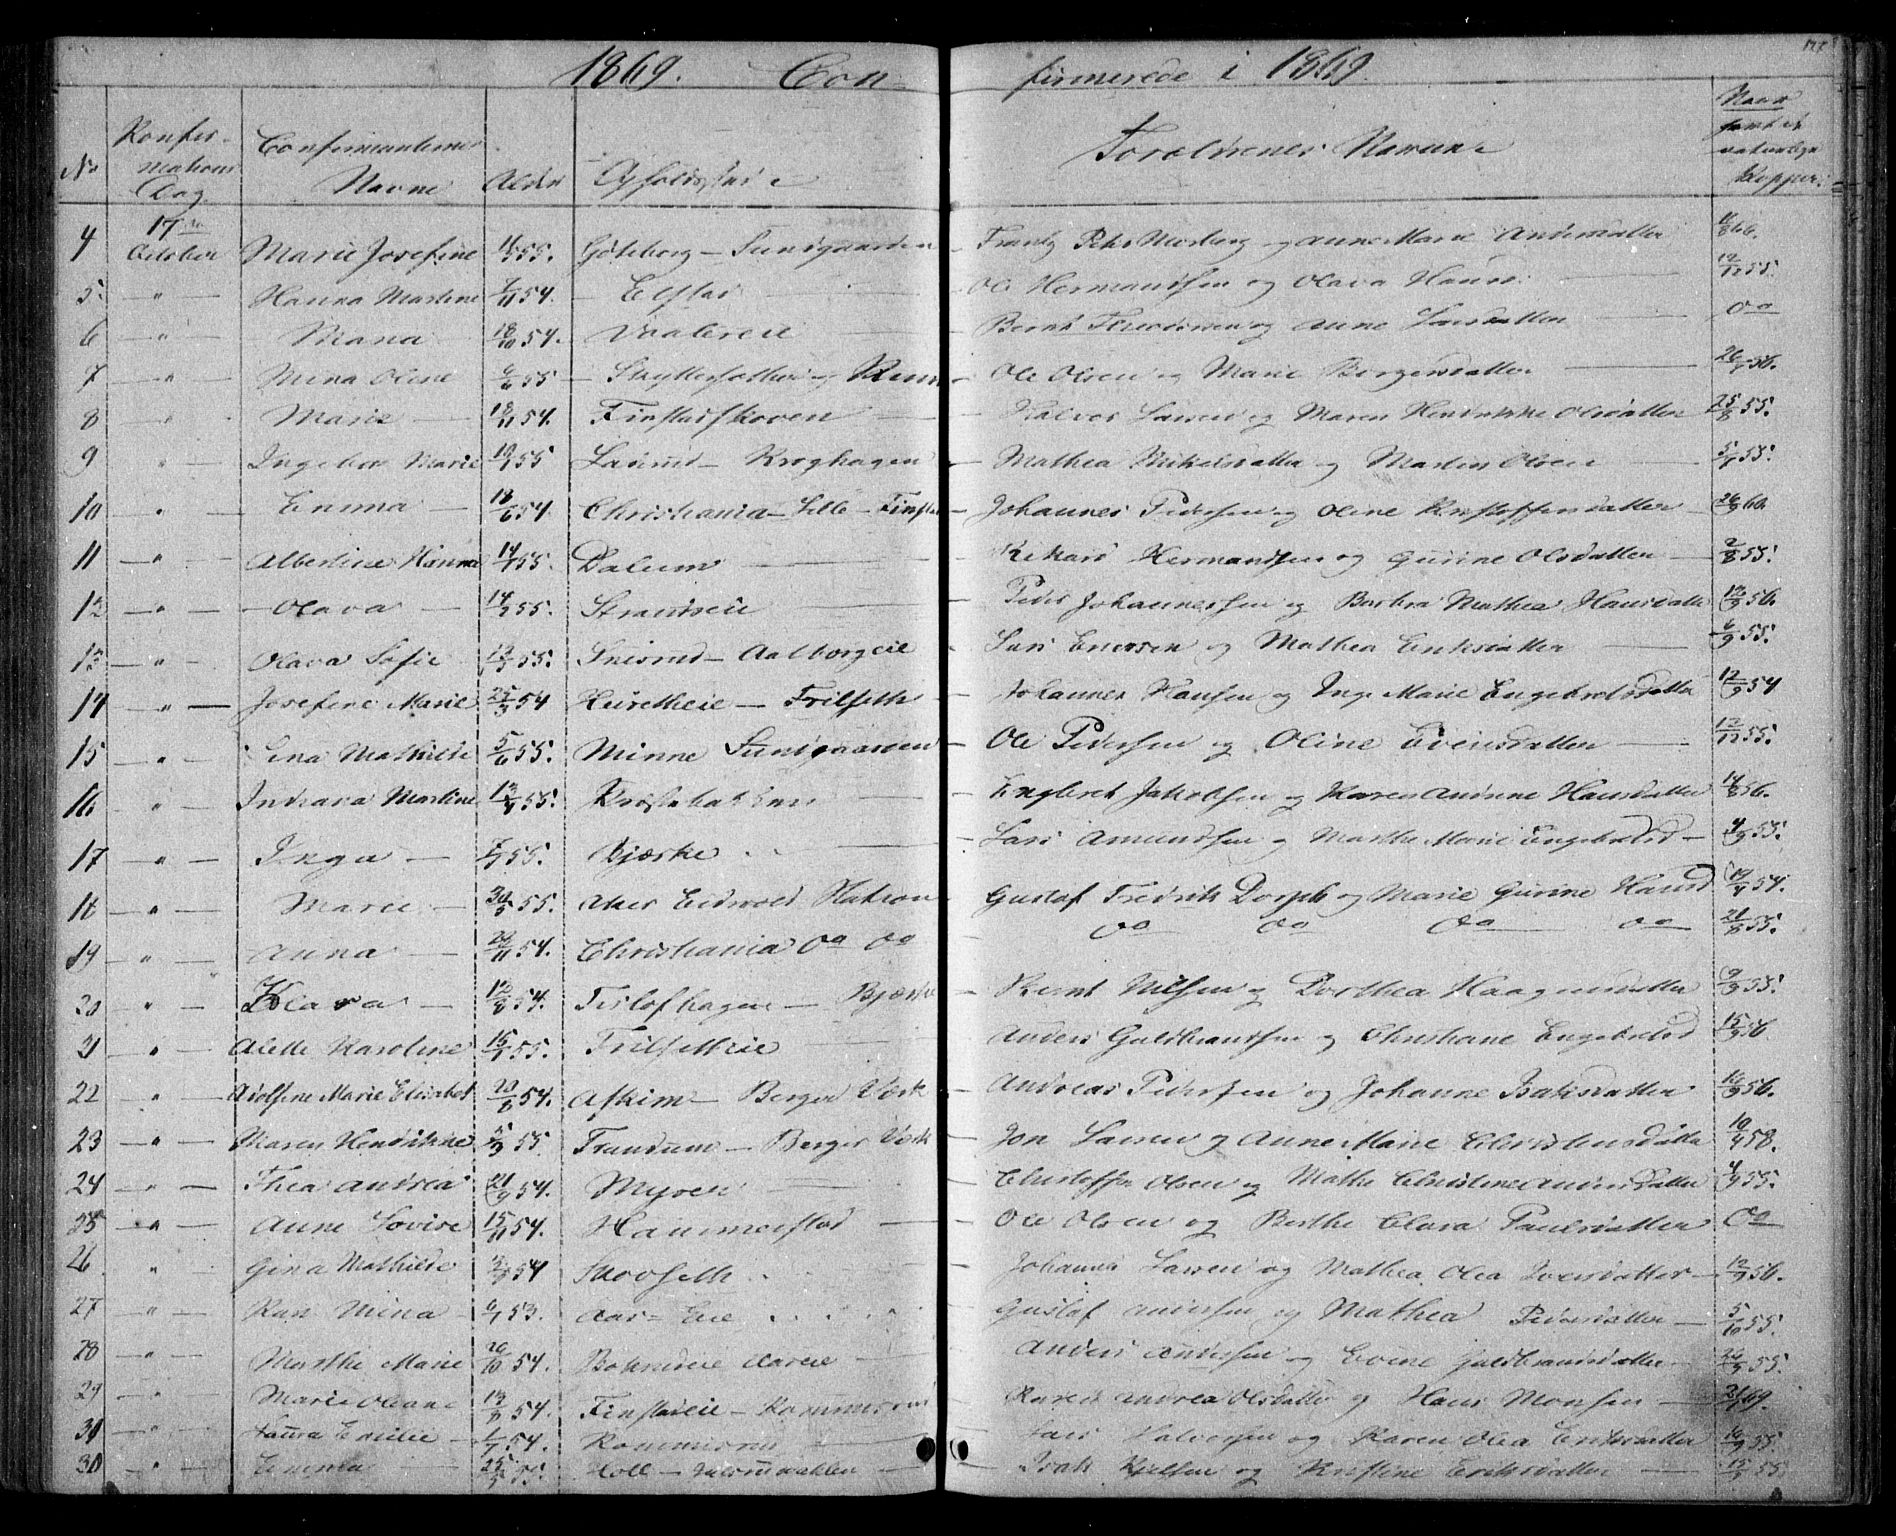 1869. Con firmerede i 1869.
No Konfir- mations Dag. Confirmanternes Navne Alder Opholdssted Forældrenes Navne Naar havt de naturlige Kopper.
4 17de October Marie Josefine 55. Göteborg - Sundgaarden Frantz Peter og Anne Marie Andersdatter 66.
5 " Hanna Martine 7/11 54. Elstad Ole Hermandsen og Olava Hansd 12/12 55.
6 " Maria 18/10 54. Vaalereie Bernt og Anne Larsdatter oo
7 " Mina Oline 6/6 55 Ole Olsen og Marie Borgersdatter 26/9 56.
8 " Marie 18/11 54. Finstadskoven Halvor Larsen og Maren Hendrikke Olsdatter 25/8 55.
9 " Ingebor Marie 19/1 55 Kroghagen Mathea Mikelsdatter og Martin Olsen 55.
10 " Emma 18/6 54. Christiania - Lille - Finstad Johannes Pedersen og Oline Kristoffersdatter 26/9 60.
11 " Albertine Hanna 14/1 55. Dalum Rikard Hermandsen og Gurine Olsdatter 2/8 55.
12 " Olava 14/2 55. Strandeie Peder Johannessen og Barbra Mathea Hansdatter 12/9 56.
13 " Olava Sofie 13/3 55. Aalborgeie Lars Enersen og Mathea Eriksdatter 6/9 55.
14 " Josefine Marie 25/3 54 Frilseth Johannes Hansen og Inge Marie Engebretsdatter 12/9 54
15 " Gina Mathilde 5/6 55. Minne Sundgaarden Ole Pedersen og Oline Evensdatter 12/12 55.
16 " Indiana Martine 55. Engbret Jakobsen og Karen Andrine Hansdatter 14/8 56.
17 " Inga 55. Bjørke Lars Amundsen og Marthe Marie Engebretsd 4/9 55.
18 " Marie 30/5 55. Aker Eidsvold Gustaf Fredrik Dorph og Marie Gurine Hansd 54.
19 " Anna 54. Christiania oo oo oo oo oo oo 21/8 55.
20 " Klara 54. Tislofhagen - Bjørke Bernt Nilsen og Dorthea Haagensdatter 9/9 55.
21 " Alette Karoline 15/1 55. Frilsetheie Anders Guldbrandsen og Christiane Engebretsd 15/9 56
22 " Adolfine Marie Elisabet 20/8 54. Askim - Berger Værk Andreas Pedersen og Johanne Isaksdatter 56.
23 " Maren Hendrikine 5/9 55. Trandum - Berger Værk Jon Larsen og Anne Marie Christensdatter 58.
24 " Thea Andrea 21/9 54. Myren Christoffer Olsen og Mathe Christine Andersdatter 55.
25 " Anne Lovise 15/11 54. Hammerstad Ole Olsen og Berthe Clara Paulsdatter oo
26 " Gina Mathilde 54 Skovseth Johannes Larsen og Mathea Olea Iversdatter 12/9 56.
27 " Karn Mina 6/1 53. Aas-Eie Gustaf Andersen og Mathea Pedersdatter 5/10 55.
28 " Marthe Marie 20/10 54. Aaseie Anders Andersen og Evine Guldbrandsdatter 55.
29 " Marie Oleane 54. Finstadeie - Rommerud Karen Andrea Olsdatter og Hans Monsen 69.
30 " Laura Emilie 1/7 54. Lars Halvorsen og Karen Olea Eriksdatter 55.
30 " Emma 25/ 55. Holl - Isak og Kristine Eriksdatter 55.